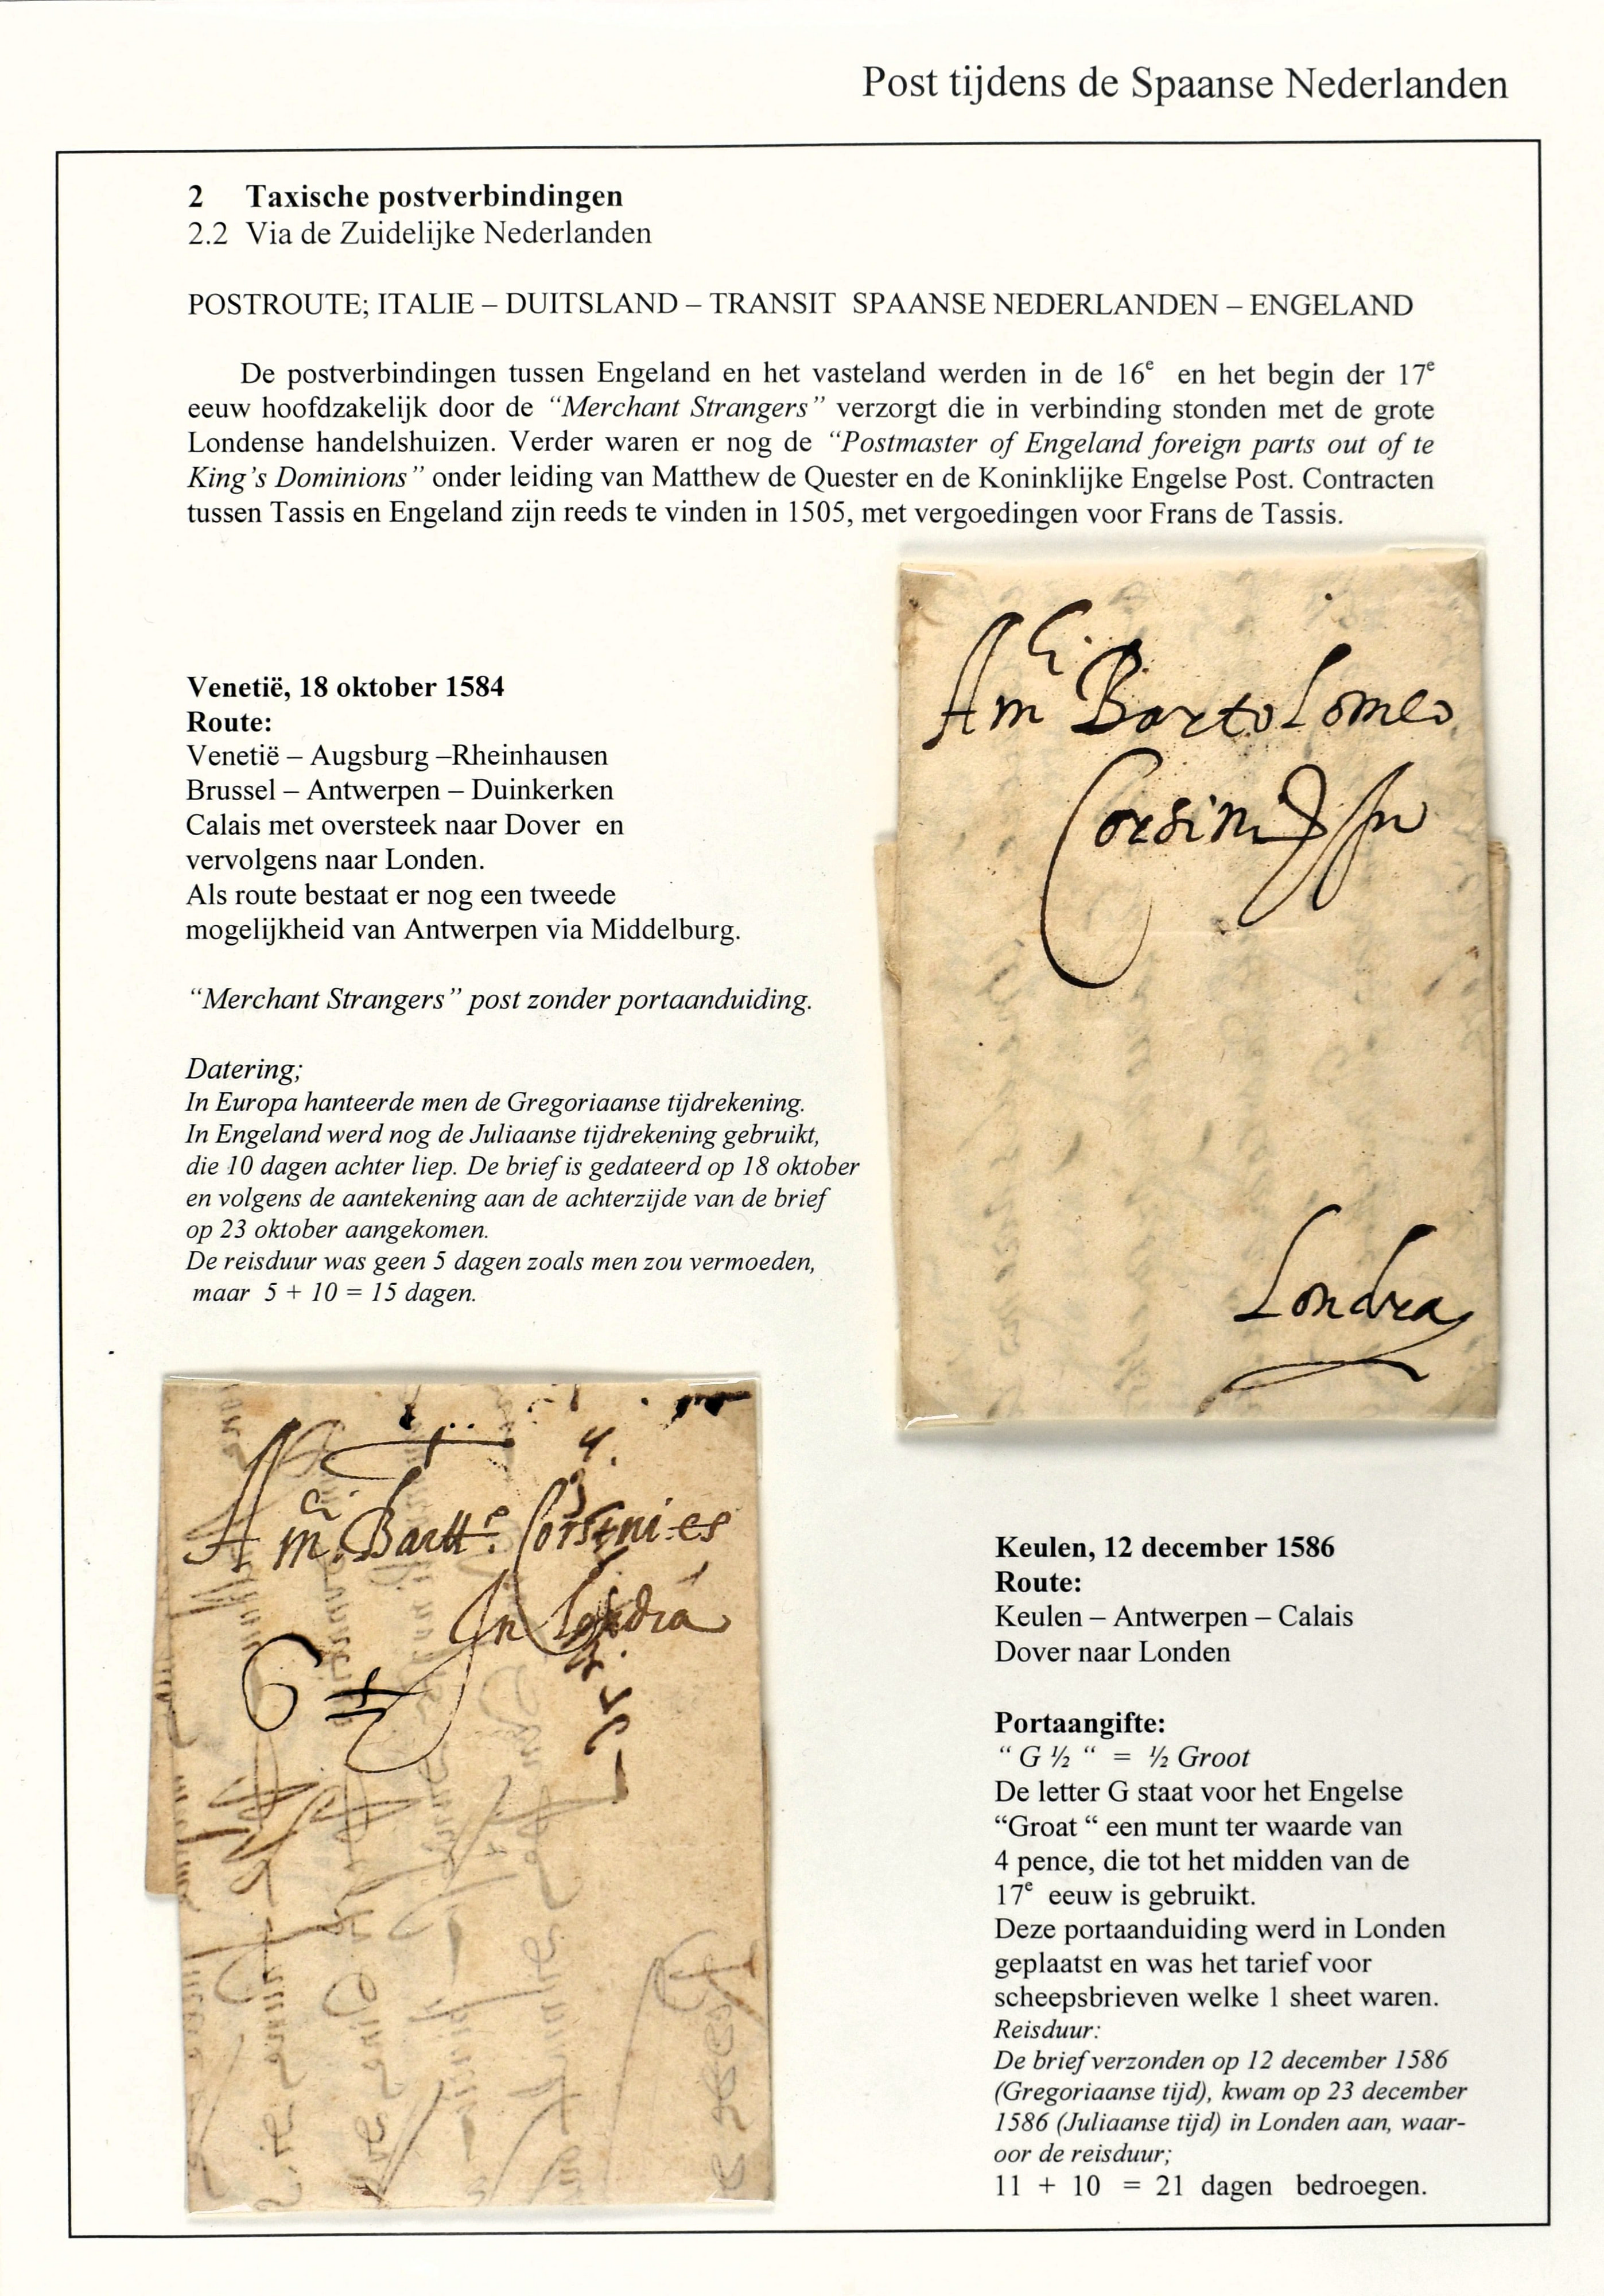 Post tijdens de Spaanse Nederlanden
2 Taxische postverbindingen
2.2 Via de Zuidelijke Nederlanden
POSTROUTE; ITALIE – DUITSLAND – TRANSIT SPAANSE NEDERLANDEN – ENGELAND
De postverbindingen tussen Engeland en het vasteland werden in de 16e en het begin der 17e
eeuw hoofdzakelijk door de “Merchant Strangers” verzorgt die in verbinding stonden met de grote
Londense handelshuizen. Verder waren er nog de “Postmaster of Engeland foreign parts out of te
King’s Dominions” onder leiding van Matthew de Quester en de Koninklijke Engelse Post. Contracten
tussen Tassis en Engeland zijn reeds te vinden in 1505, met vergoedingen voor Frans de Tassis.
Venetië, 18 oktober 1584
Route:
Venetië – Augsburg –Rheinhausen
Brussel – Antwerpen – Duinkerken
Calais met oversteek naar Dover en
vervolgens naar Londen.
Als route bestaat er nog een tweede
mogelijkheid van Antwerpen via Middelburg.
“Merchant Strangers” post zonder portaanduiding.
Datering;
In Europa hanteerde men de Gregoriaanse tijdrekening.
In Engeland werd nog de Juliaanse tijdrekening gebruikt,
die 10 dagen achter liep. De brief is gedateerd op 18 oktober
en volgens de aantekening aan de achterzijde van de brief
op 23 oktober aangekomen.
De reisduur was geen 5 dagen zoals men zou vermoeden,
maar 5 + 10 = 15 dagen.
A mci Bartolomeo
Corsini
Londra
A mci Bartto Corsini
In Londra
Keulen, 12 december 1586
Route:
Keulen – Antwerpen – Calais
Dover naar Londen
Portaangifte:
“ G ½ “ = ½ Groot
De letter G staat voor het Engelse
“Groat “ een munt ter waarde van
4 pence, die tot het midden van de
17e eeuw is gebruikt.
Deze portaanduiding werd in Londen
geplaatst en was het tarief voor
scheepsbrieven welke 1 sheet waren.
Reisduur:
De brief verzonden op 12 december 1586
(Gregoriaanse tijd), kwam op 23 december
1586 (Juliaanse tijd) in Londen aan, waar-
oor de reisduur;
11 + 10 = 21 dagen bedroegen.